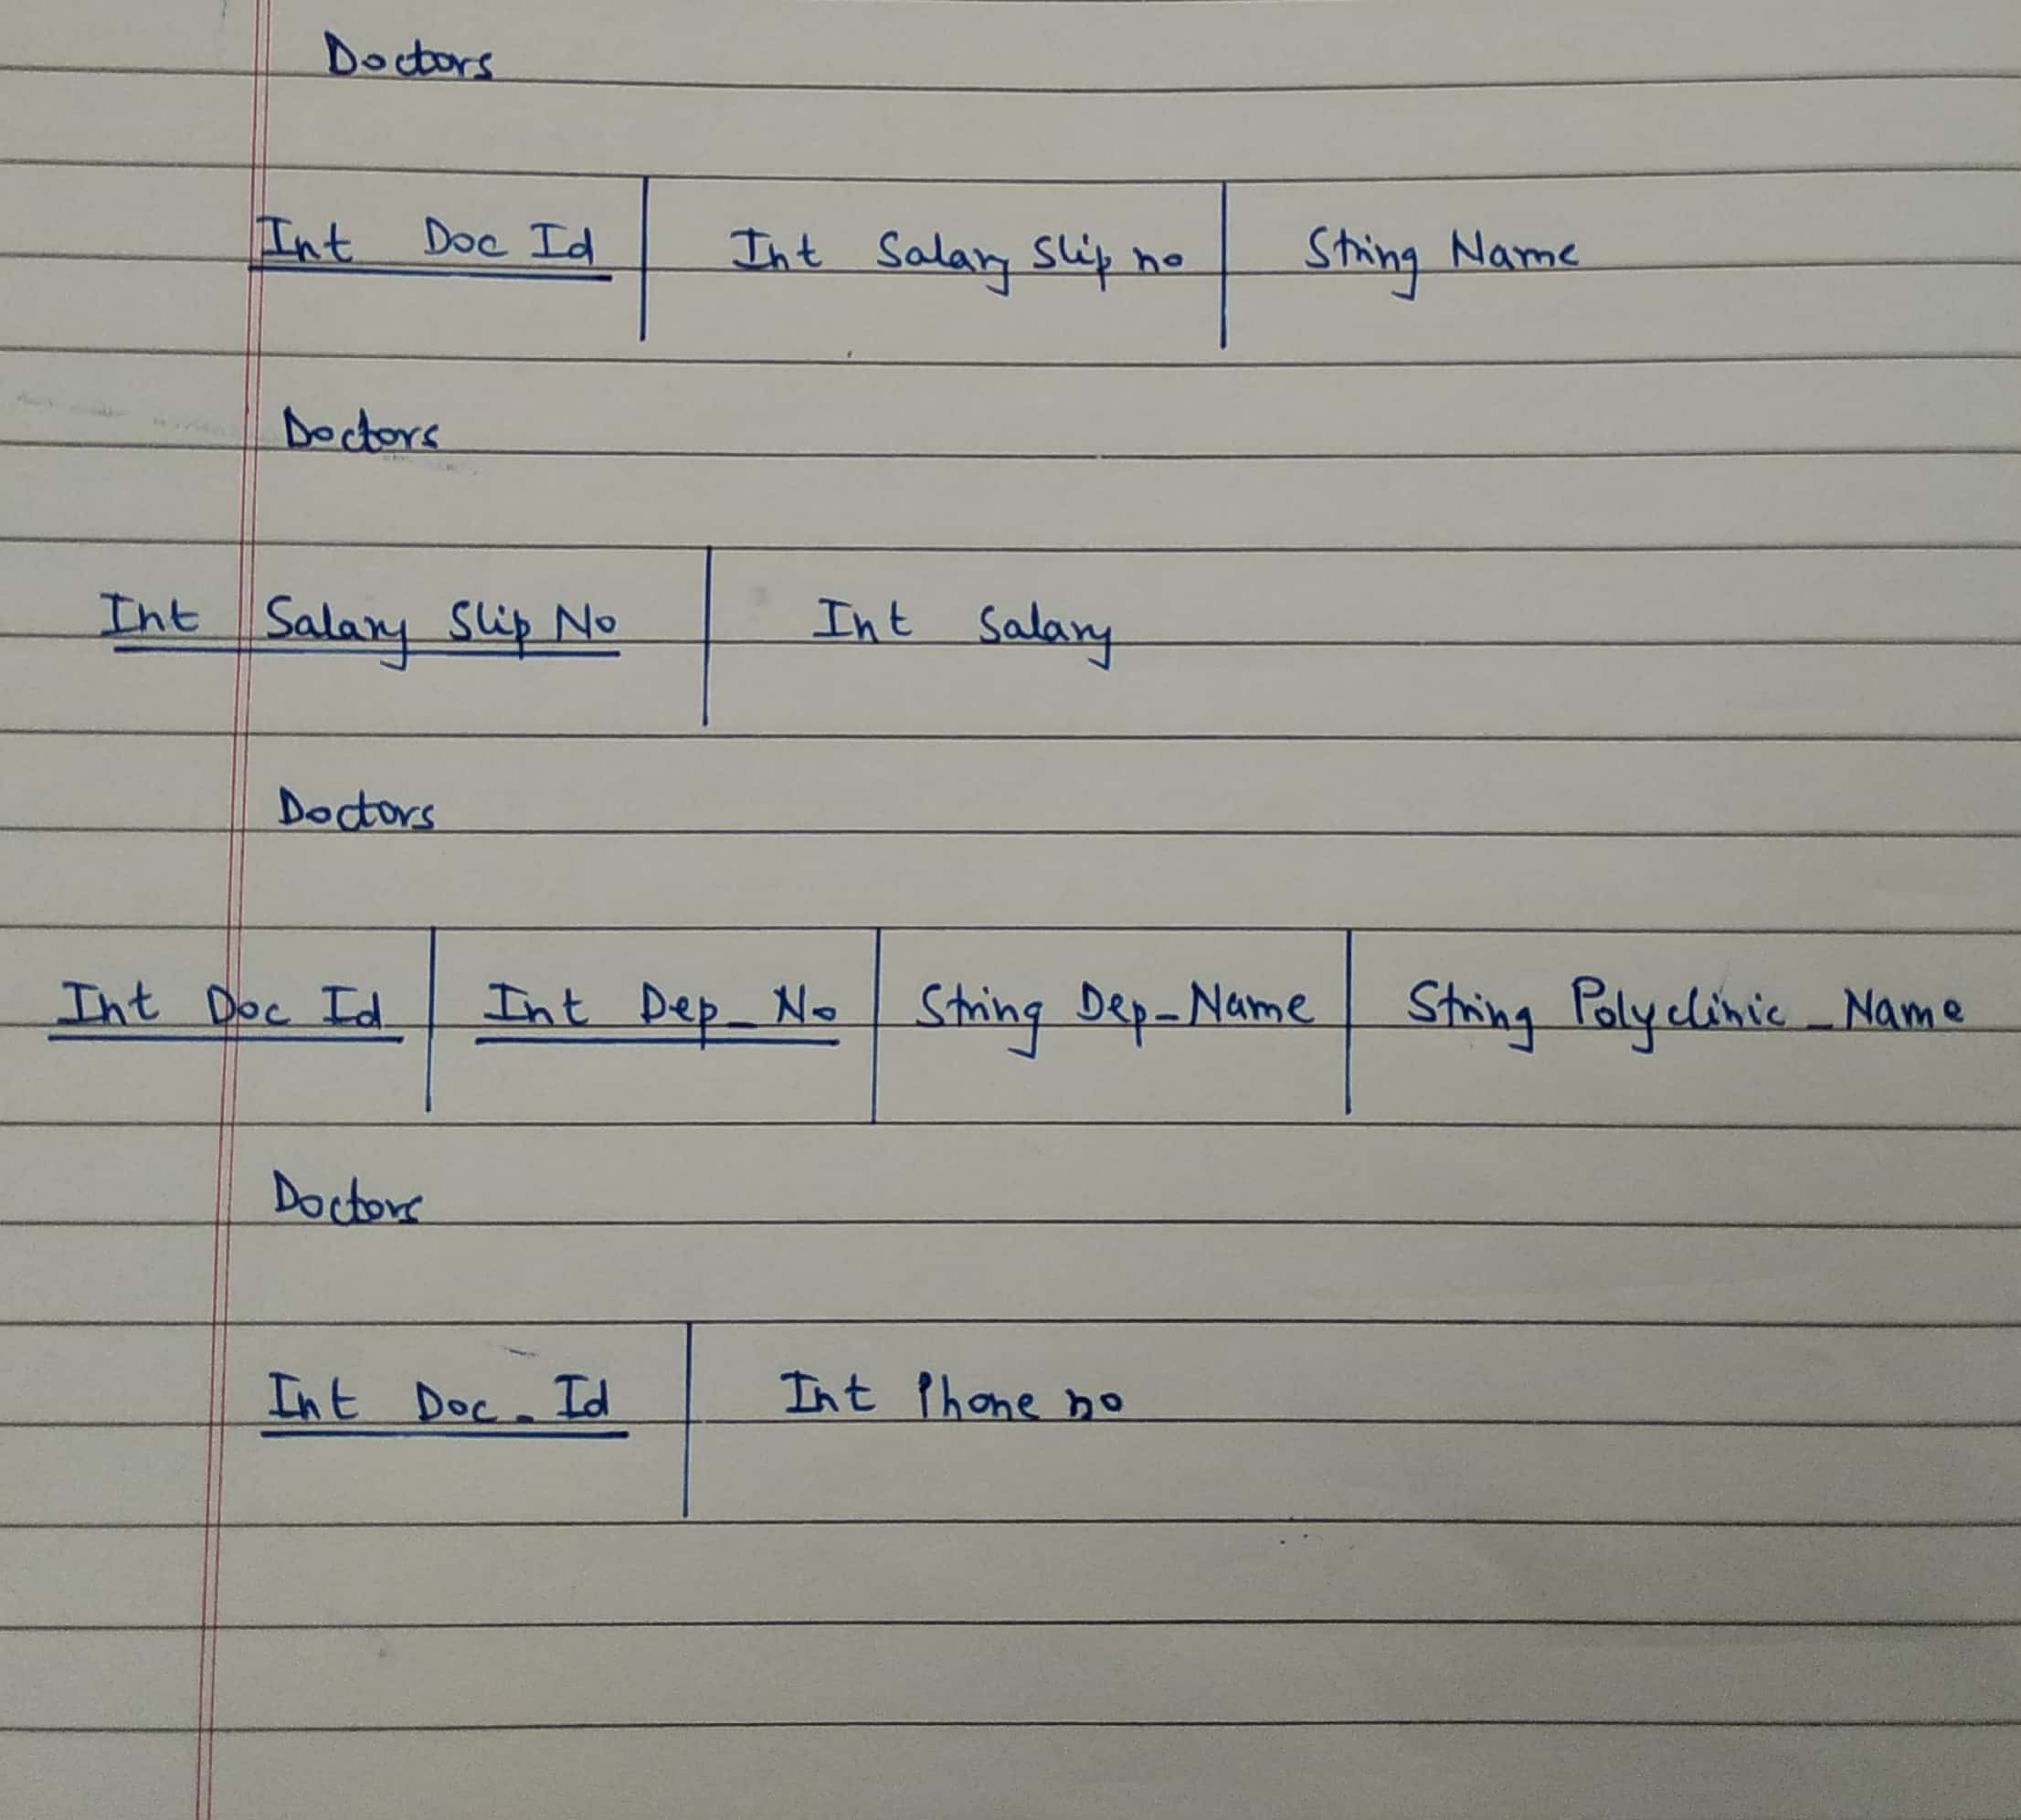 Doctors
Int Doc Id Int Salary Slip no String Name
Doctors
Int Salary Slip No Int Salary
Doctors
Int Doc Id Int Dep_No String Dep_Name String Polyclinic_Name
Doctors
Int Doc_Id Int Phone no